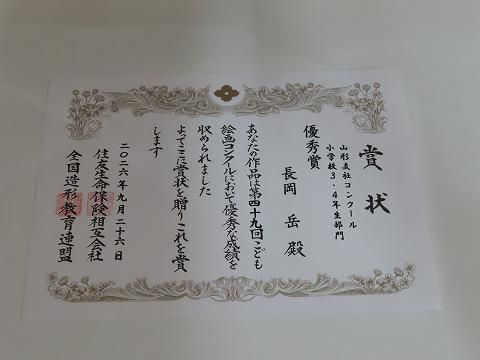 賞状
山形支社コンクール
小学校3・4年生部門
優秀賞
長岡 岳 殿
あなたの作品は第四十九回こども
絵画コンクールにおいて優秀な成績を
収められました
よってここに賞状を贈りこれを賞
します
二〇二六年九月二十六日
住友生命保険相互会社
全国造形教育連盟